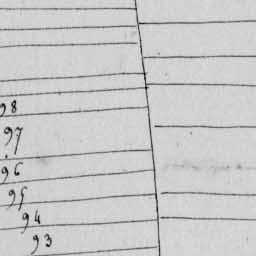 98
97
96
95
94
93